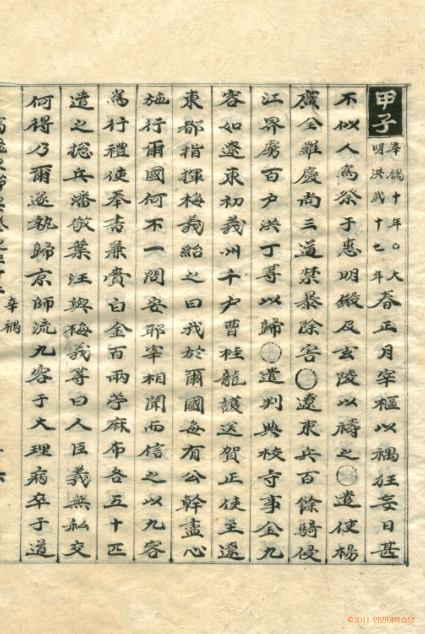 甲子 辛禑十年○大明洪武十七年 春正月宰樞以禑狂妄日甚
不似人爲祭于惠明及玄陵以禱之○遣使楊
廣全羅慶尚三道禁暴除害○遼東兵百餘騎侵
江界虜百户洪丁等以歸○遣判典校寺事金九
容如遼東初義州千户曹桂龍護送賀正使至遼
東都指揮梅義紿之曰我於爾國每有公幹盡心
施行爾國何不一問安耶宰相聞而信之以九容
爲行禮使奉書兼賷白金百兩苧麻布各五十匹
遣之摠兵潘敬葉汪與梅義等曰人臣義無私交
何得乃爾遂執歸京師流九容于大理病卒于道
辛禑
©2011 인민대학습당